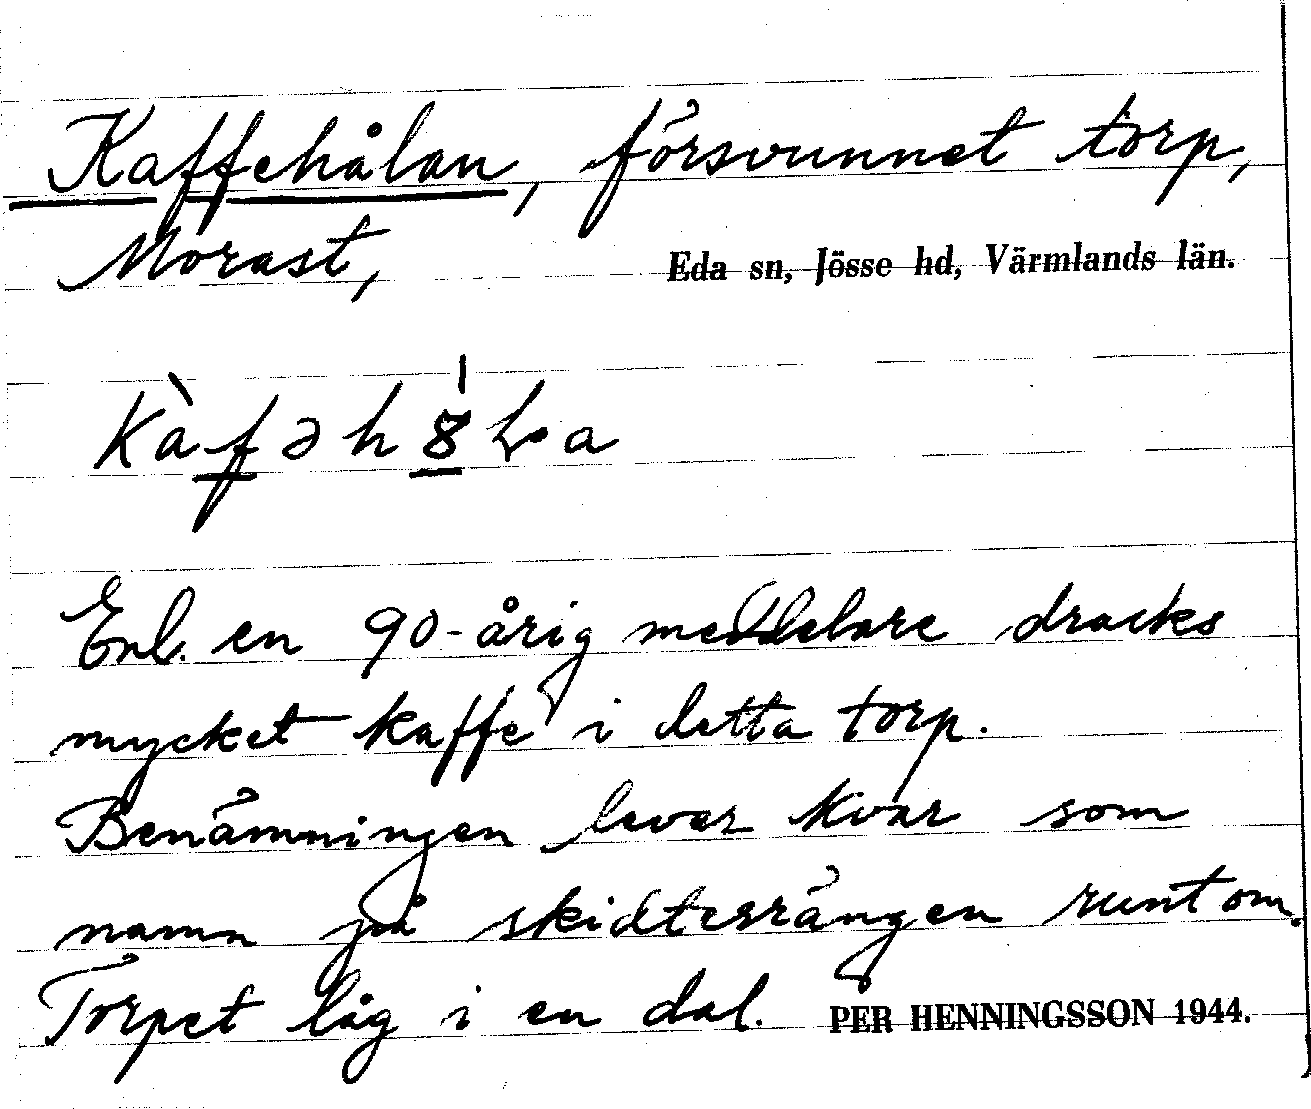 Kaffehålan, försvunnet torp,
Morast, Eda sn, Jösse hd, Värmlands län.
Enl. en 90-årig meddelare dracks
mycket kaffe i detta torp.
Benämningen lever kvar som
namn på skidterrängen runt om.
Torpet låg i en dal. PER HENNINGSSON 1944.